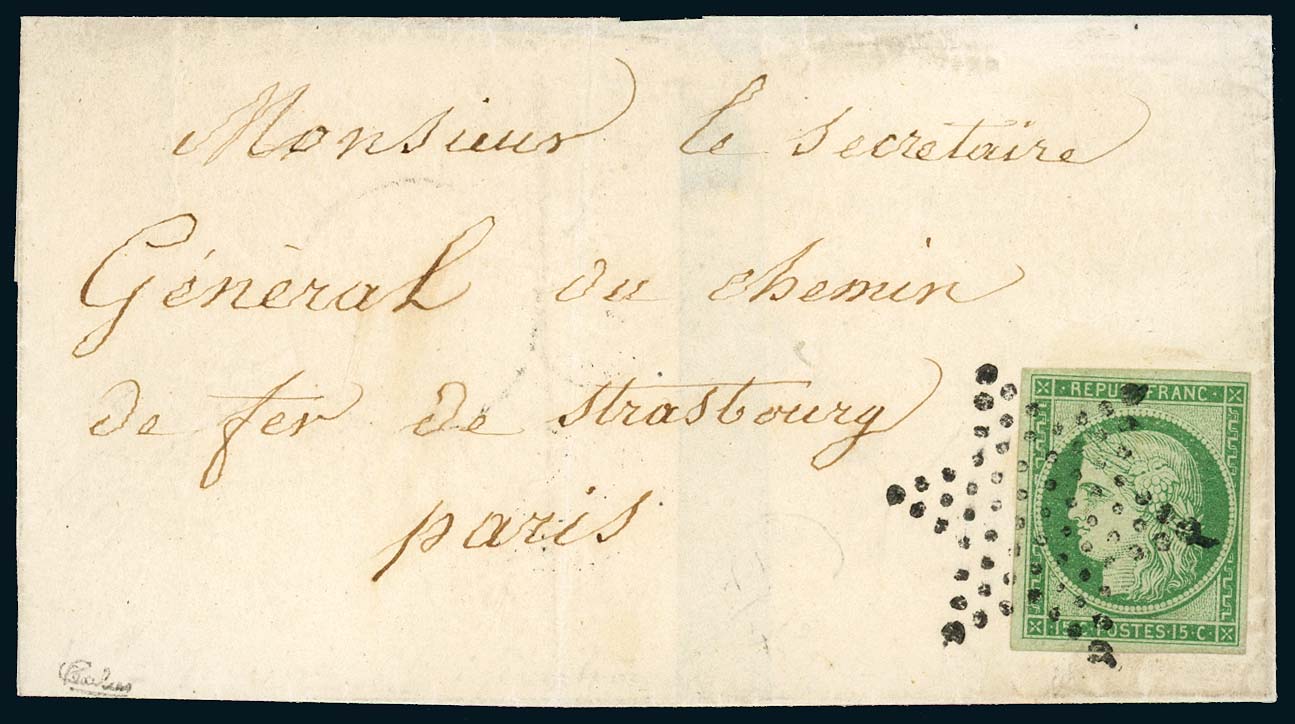 Monsieur le secretaire
Général du chemin
de fer de strasbourg
paris
REPUB FRANC
15 C POSTES 15 C